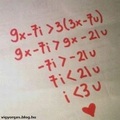 9x-7i>3(3x-7u)
9x-7i>9x-21u
-7i>-21u
7i<21u
i<3u